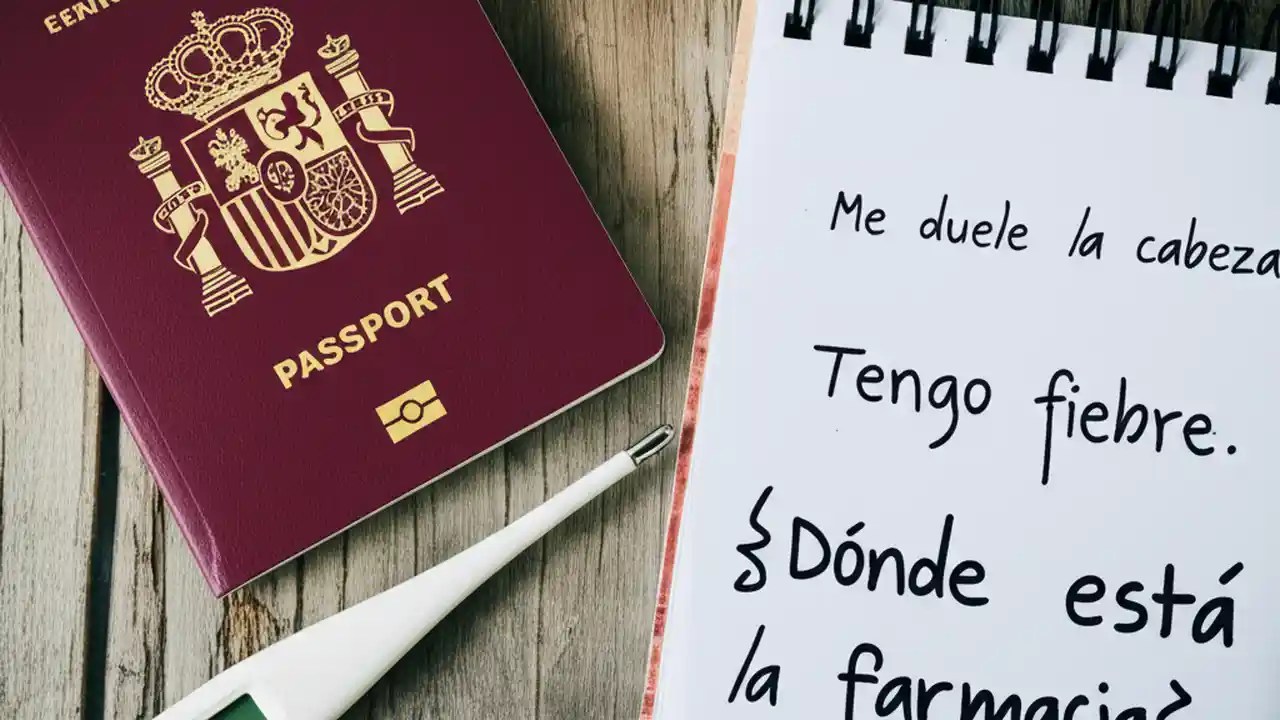 PASSPORT
Me duele la cabeza
Tengo fiebre.
¿Dónde está
la farmacia?